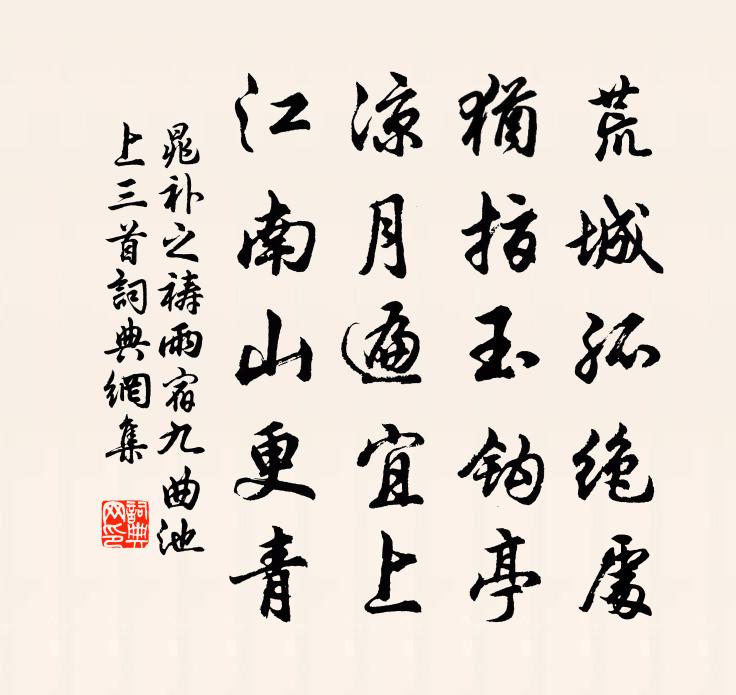 荒城孤绝處
猶指玉鈎亭
凉月遍宜上
江南山更青
晁补之禱雨宿九曲池
上三首詞典網集
詞典
网印